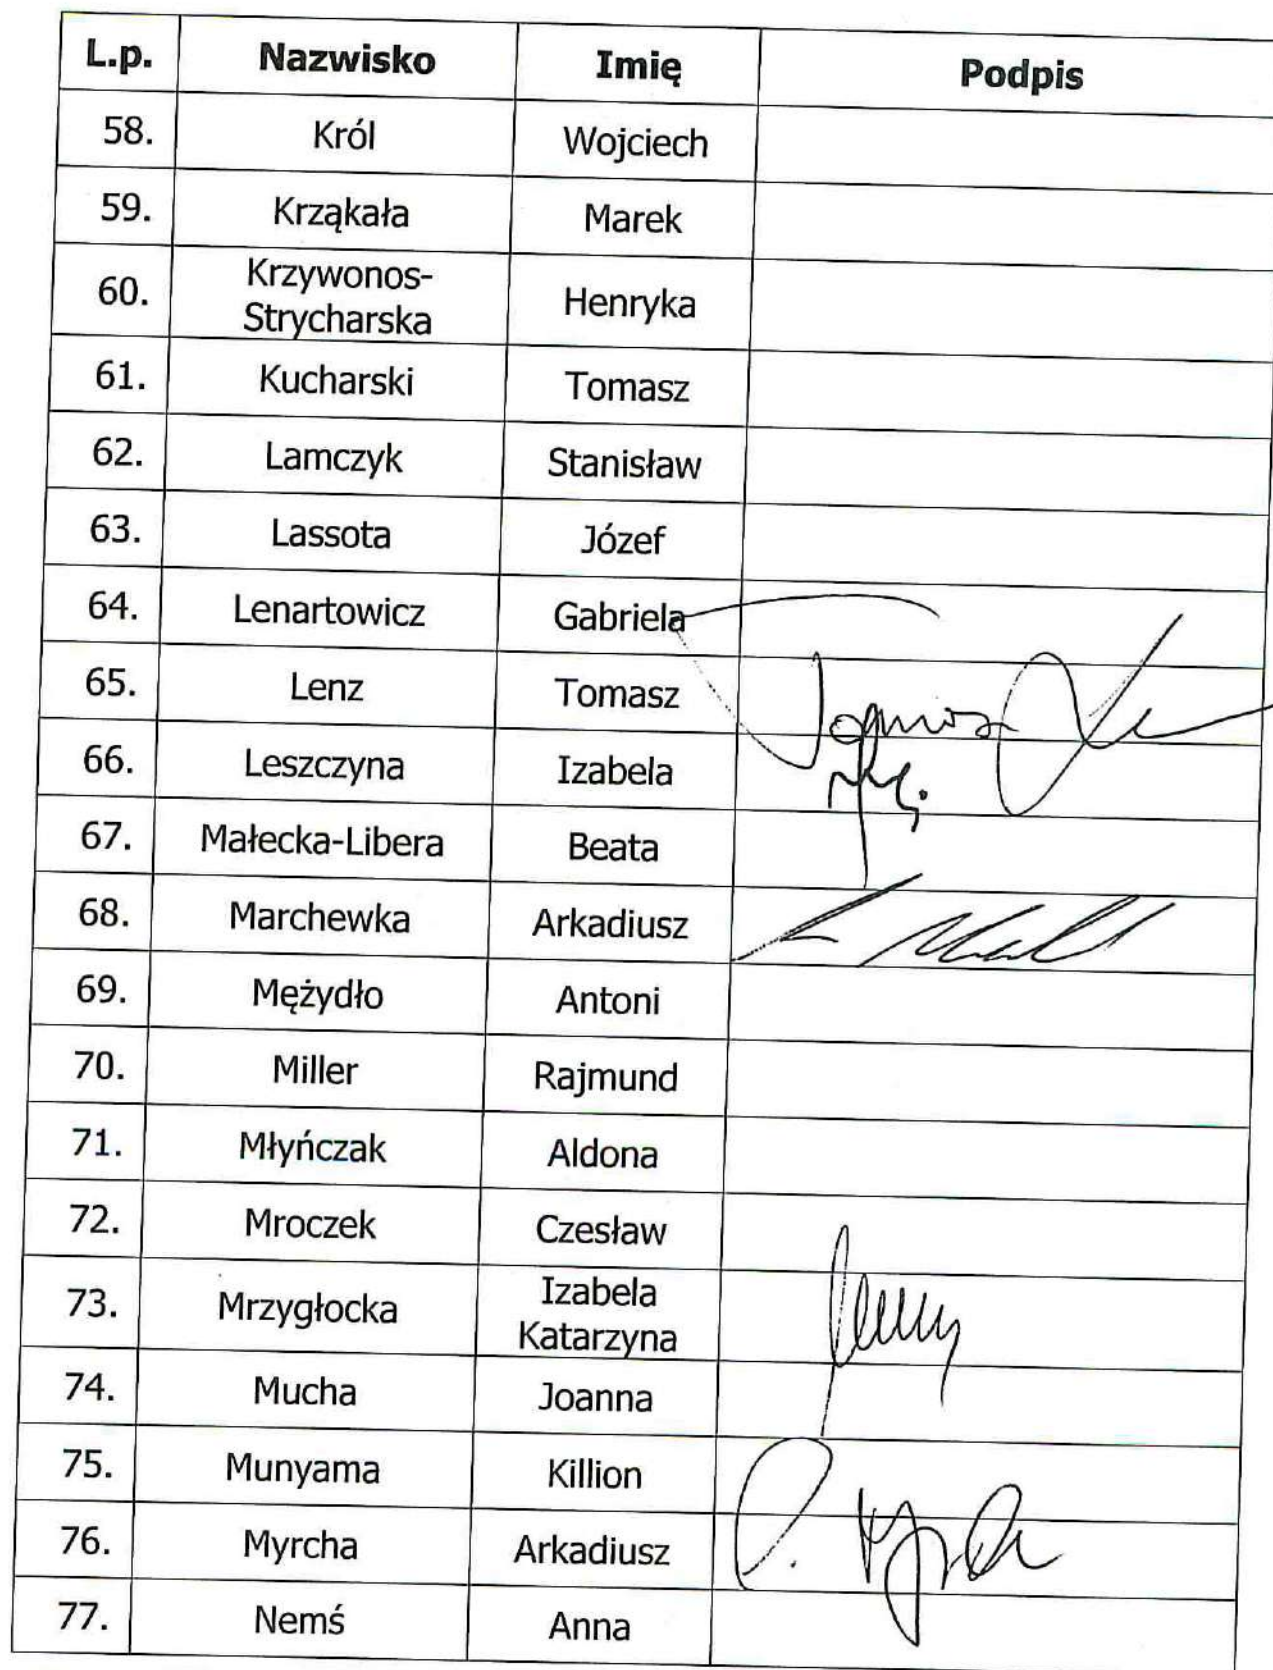 L.p. Nazwisko Imię Podpis
58. Król Wojciech
59. Krząkała Marek
60. Krzywonos- Henryka
Strycharska
61. Kucharski Tomasz
62. Lamczyk Stanisław
63. Lassota Józef
64. Lenartowicz Gabriela
65. Lenz Tomasz Tomasz
66. Leszczyna Izabela
67. Małecka-Libera Beata
68. Marchewka Arkadiusz
69. Mężydło Antoni
70. Miller Rajmund
71. Młyńczak Aldona
72. Mroczek Czesław
73. Mrzygłocka Izabela
Katarzyna
74. Mucha Joanna
75. Munyama Killion
76. Myrcha Arkadiusz
77. Nemś Anna